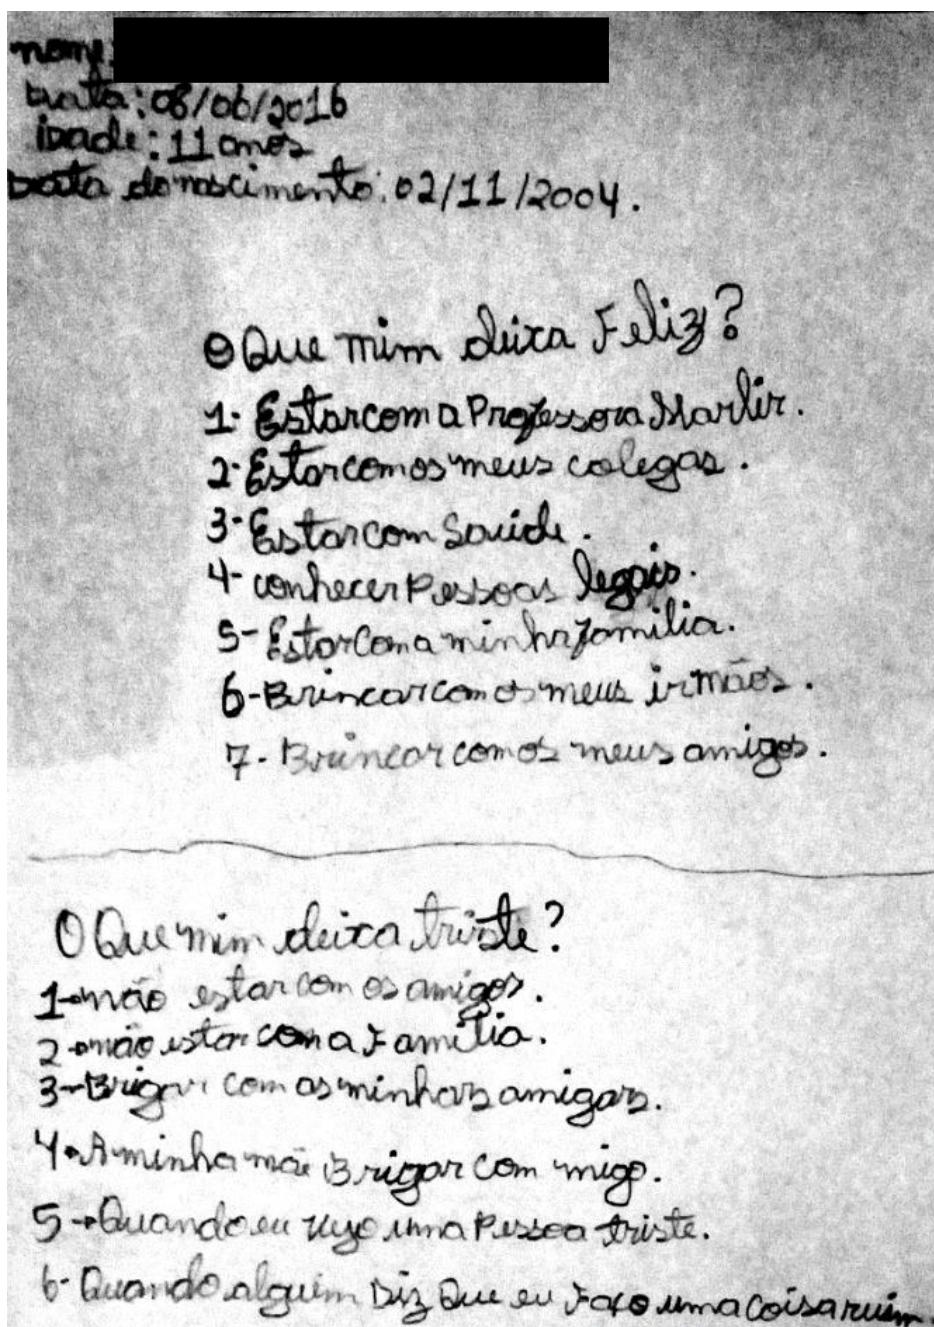 nome:
Data: 08/06/2016
idade: 11 anos
Data do nascimento: 02/11/2004.
O Que mim deixa Feliz?
1- Estar com a Professora Marlir.
2- Estar com os meus colegas.
3- Estar com Saúde.
4- conhecer Pessoas legais.
5- Estar com a minha família.
6- Brincar com os meus irmãos.
7- Brincar com os meus amigos.
O Que mim deixa triste?
1→ não estar com os amigos.
2→ não estar com a Família.
3→ Brigar com as minhas amigas.
4→ A minha mãe Brigar com migo.
5→ Quando eu vejo uma Pessoa triste.
6- Quando alguém Diz Que eu Faço uma coisa ruim.